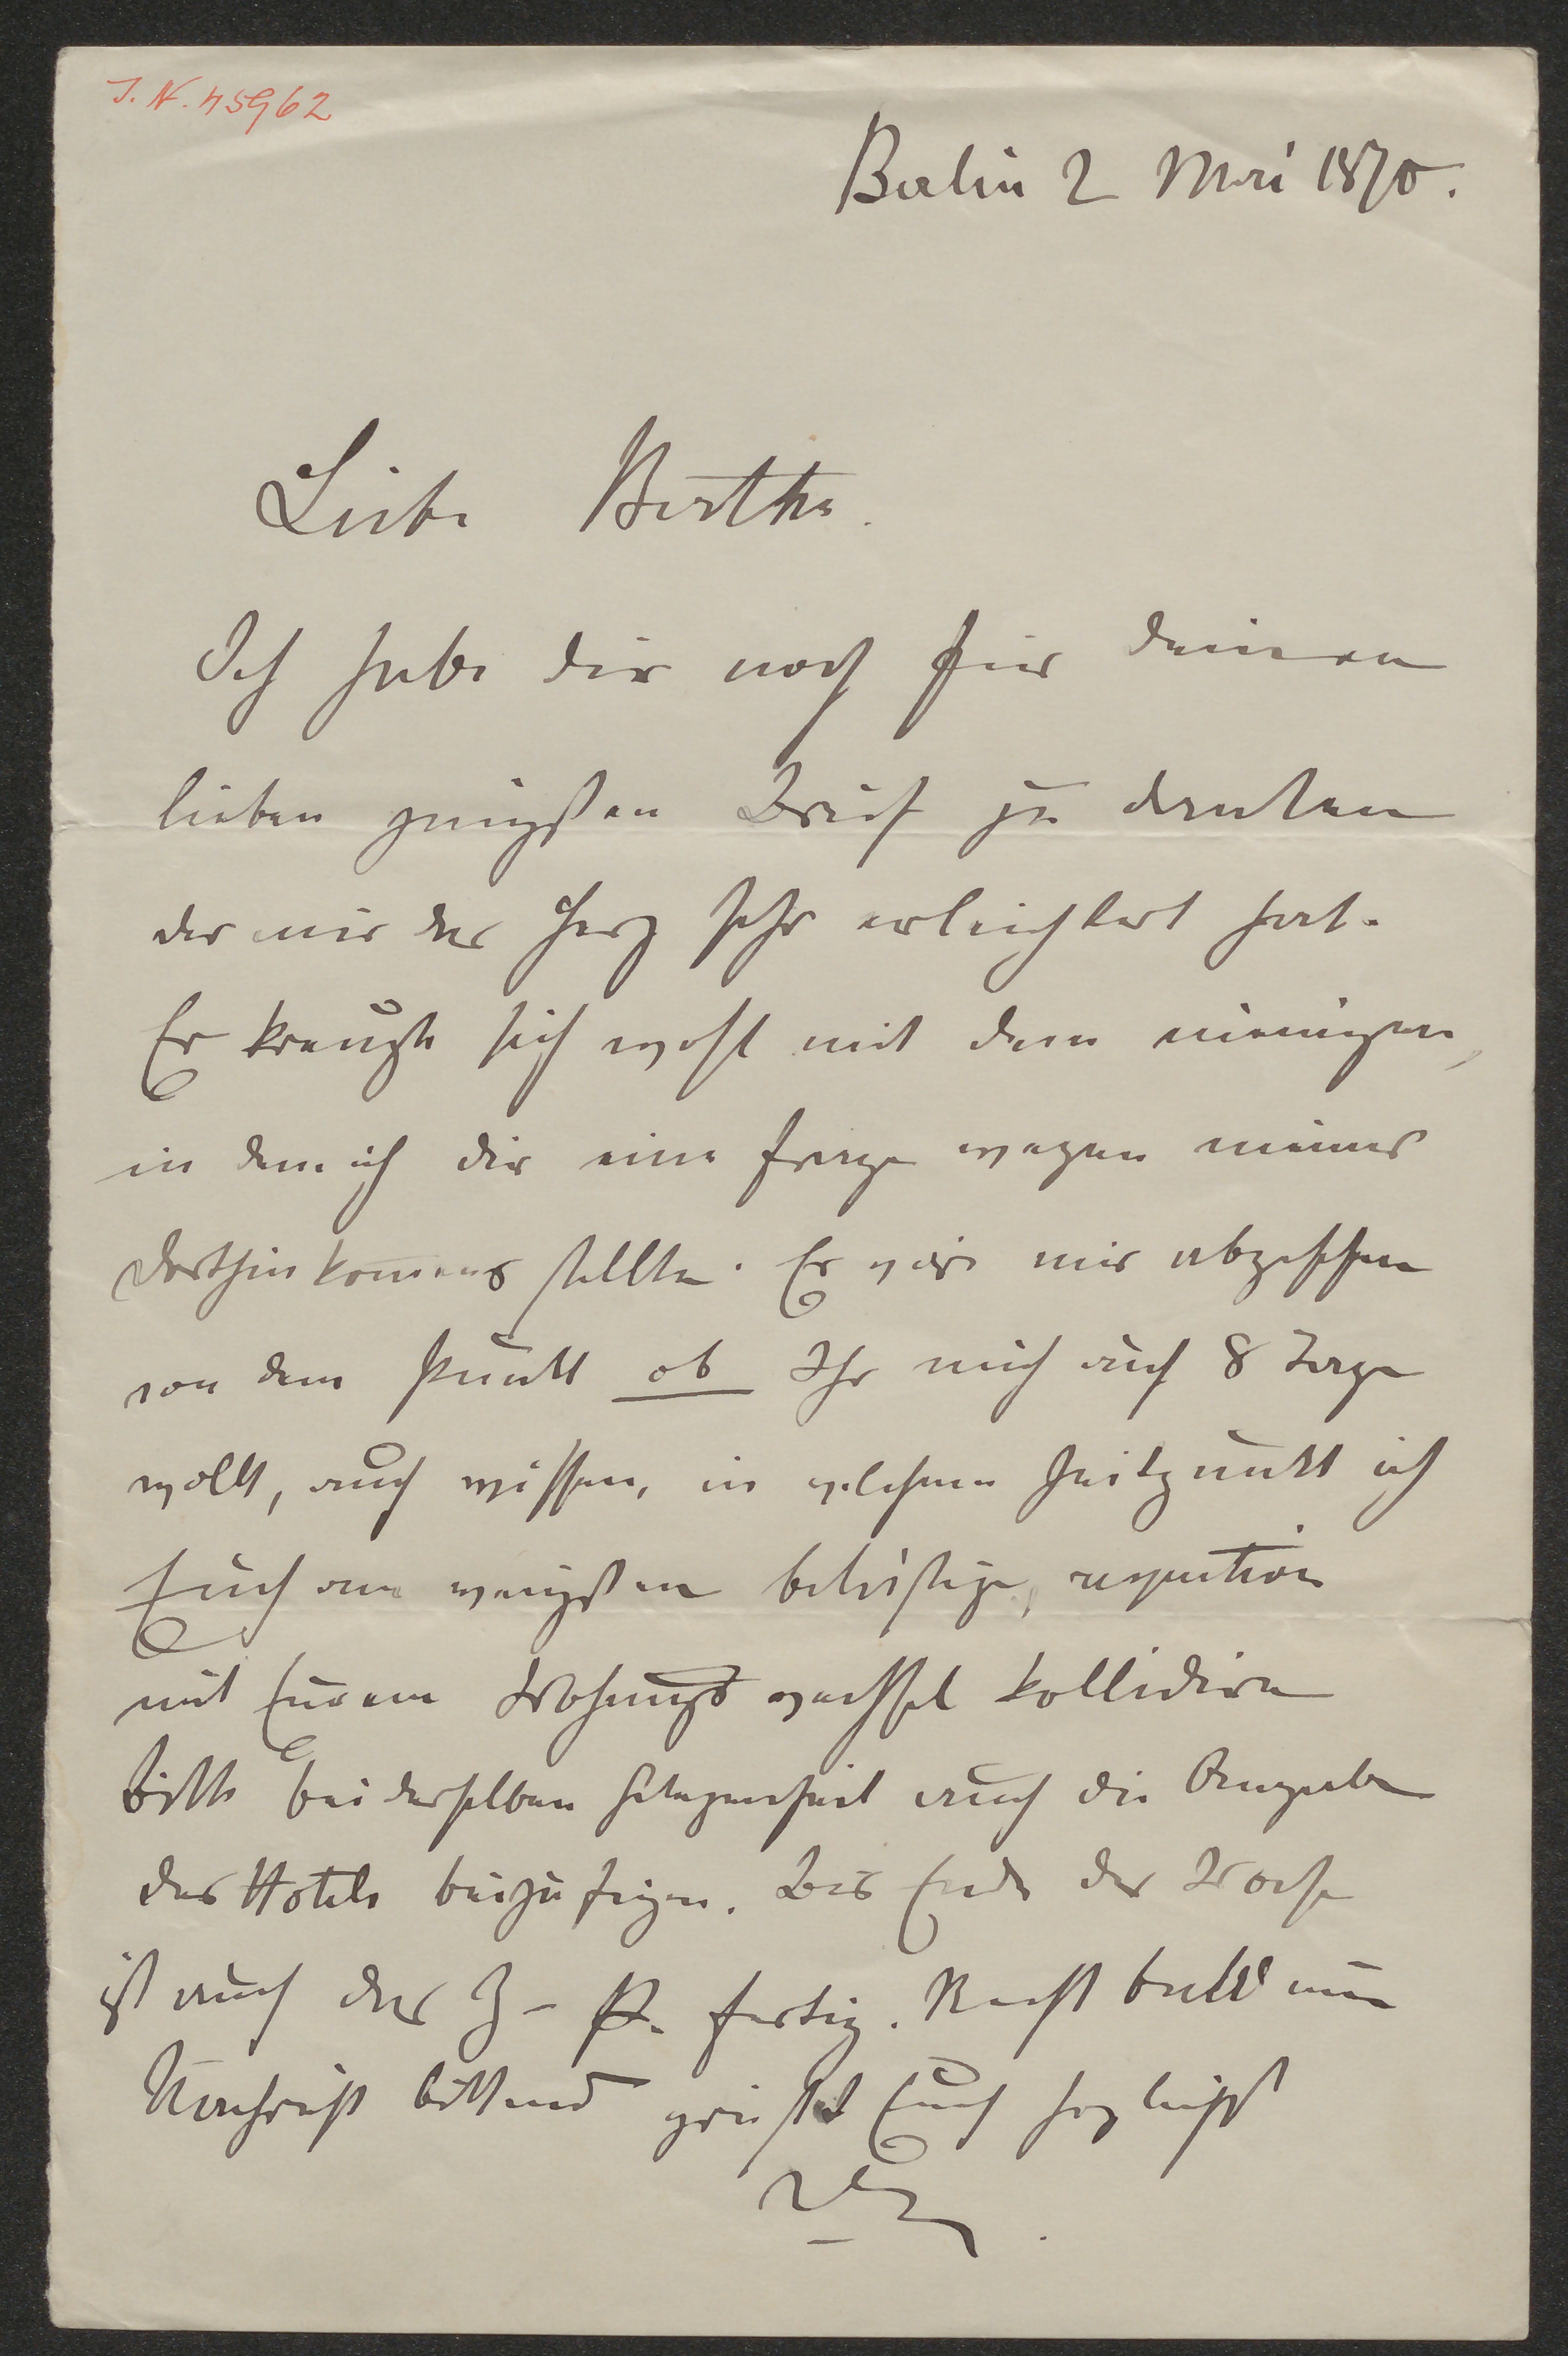 J. N. 45962
Berlin 2 Mai 1870.
Liebe Bertha.
Ich habe dir noch für deinen
lieben gütigsten Brief zu danken
der mir das Herz sehr erleichtert hat.
Er kreuzte sich wohl mit dem meinigen,
in dem ich dir eine Frage wegen meines
Dorthinkomens stellte. Es wäre mir abgesehen
von dem Punkt ob Ihr mich auf 8 Tage
wollt, auch wissen, in welchem Zeitpunkt ich
Euch am wenigsten belästige, respective
mit Eurem Wohnungswechsel kollidire
bitte bei derselben Gelegenheit auch die Angabe
des Hotels beizufügen. Bis Ende der Woche
ist auch das Z- P. fertig. Recht bald um
Nachricht bittend grüßt Euch herzlichst